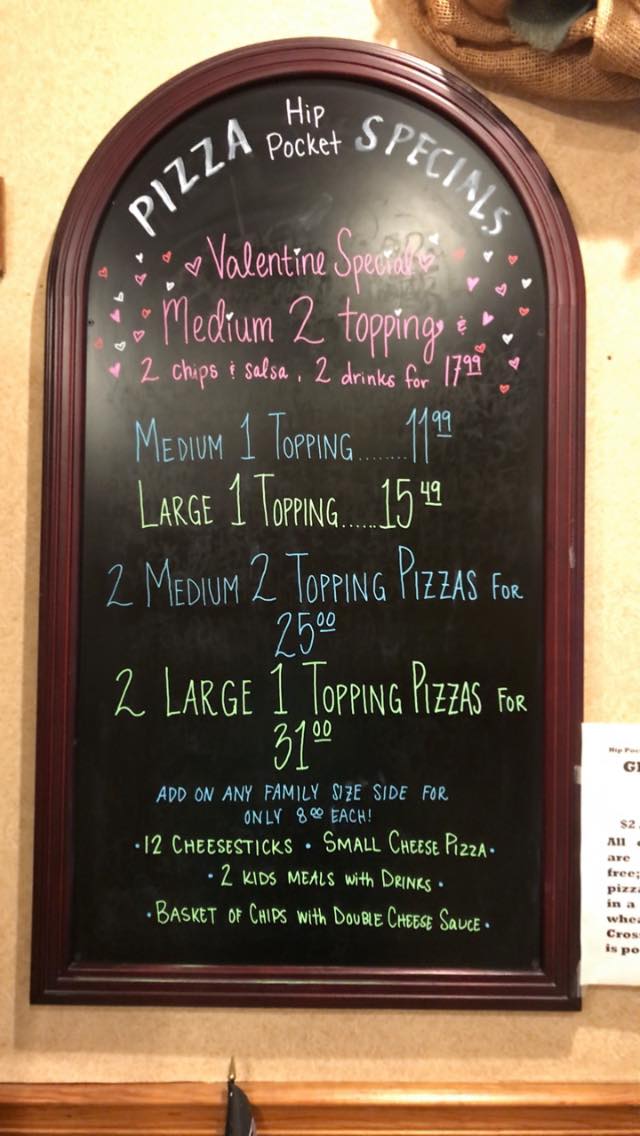 PIZZA Hip Pocket SPECIALS
Valentine Special
Medium 2 topping &
2 chips & salsa, 2 drinks for 17.99
MEDIUM 1 TOPPING........11.99
LARGE 1 TOPPING......15.49
2 MEDIUM 2 TOPPING PIZZAS FOR
25.00
2 LARGE 1 TOPPING PIZZAS FOR
31.00
ADD ON ANY FAMILY SIZE SIDE FOR
ONLY 8.00 EACH!
•12 CHEESESTICKS • SMALL CHEESE PIZZA•
• 2 KIDS MEALS with DRINKS •
•BASKET OF CHIPS with DOUBLE CHEESE SAUCE•
Hip
$2
All
are
free;
in a
is po